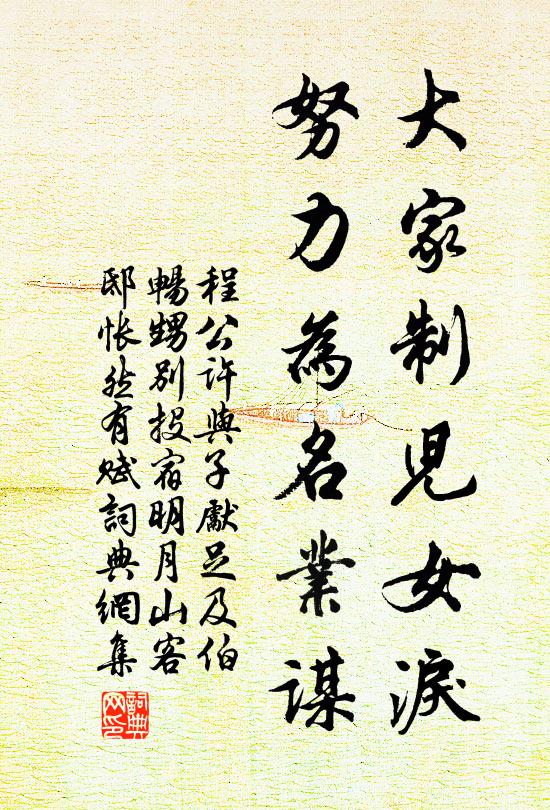 大家制兒女淚
努力為名業謀
程公許與子獻足及伯
暢甥別投宿明月山客
邸悵然有賦詞典網集
詞典網印